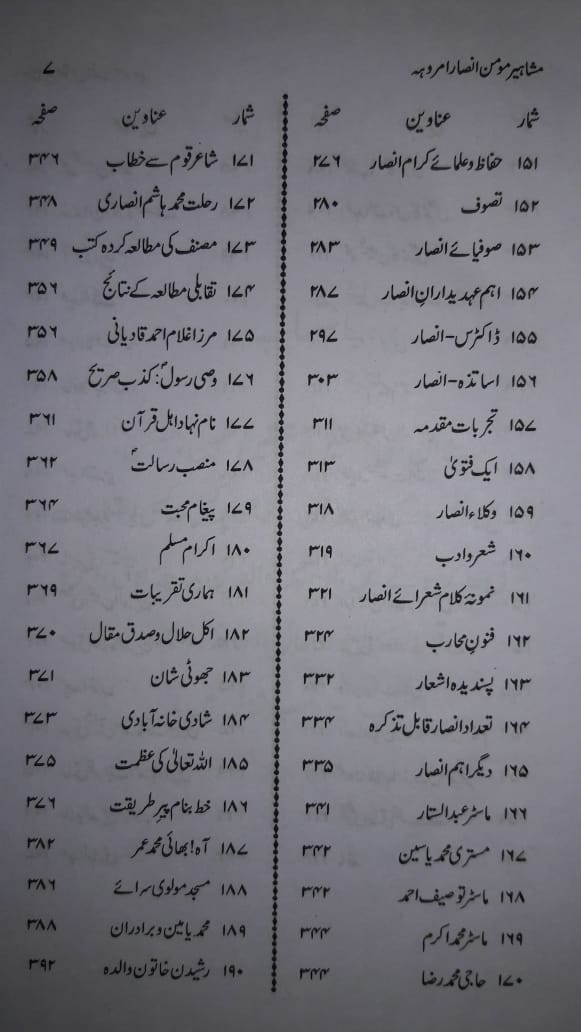 مشاہیر مومن انصار امروہہ ۷
شمار عناوین صفحہ
۱۵۱ حفاظ و علمائے کرام انصار ۲۷۶
۱۵۲ تصوف ۲۸۰
۱۵۳ صوفیائے انصار ۲۸۳
۱۵۴ اہم عہدیدارانِ انصار ۲۸۷
۱۵۵ ڈاکٹرس-انصار ۲۹۷
۱۵۶ اساتذہ-انصار ۳۰۳
۱۵۷ تجربات مقدمہ ۳۱۱
۱۵۸ ایک فتویٰ ۳۱۳
۱۵۹ وکلاء انصار ۳۱۸
۱۶۰ شعر و ادب ۳۱۹
۱۶۱ نمونۂ کلام شعرائے انصار ۳۲۱
۱۶۲ فنونِ محارب ۳۲۴
۱۶۳ پسندیدہ اشعار ۳۳۲
۱۶۴ تعداد انصار قابل تذکرہ ۳۳۴
۱۶۵ دیگر اہم انصار ۳۳۵
۱۶۶ ماسٹر عبدالستار ۳۴۱
۱۶۷ مستری محمد یاسین ۳۴۲
۱۶۸ ماسٹر توصیف احمد ۳۴۲
۱۶۹ ماسٹر محمد اکرم ۳۴۴
۱۷۰ حاجی محمد رضا ۳۴۴
شمار عناوین صفحہ
۱۷۱ شاعر قوم سے خطاب ۳۴۶
۱۷۲ رحلت محمد ہاشم انصاری ۳۴۸
۱۷۳ مصنف کی مطالعہ کردہ کتب ۳۴۹
۱۷۴ تقابلی مطالعہ کے نتائج ۳۵۶
۱۷۵ مرزا غلام احمد قادیانی ۳۵۶
۱۷۶ وصی رسولؐ: کذب صریح ۳۵۸
۱۷۷ نام نہاد اہل قرآن ۳۶۱
۱۷۸ منصب رسالتؐ ۳۶۲
۱۷۹ پیغام محبت ۳۶۴
۱۸۰ اکرام مسلم ۳۶۷
۱۸۱ ہماری تقریبات ۳۶۹
۱۸۲ اکل حلال و صدق مقال ۳۷۰
۱۸۳ جھوٹی شان ۳۷۱
۱۸۴ شادی خانہ آبادی ۳۷۳
۱۸۵ اللہ تعالیٰ کی عظمت ۳۷۵
۱۸۶ خط بنام پیرِ طریقت ۳۷۶
۱۸۷ آہ! بھائی محمد عمر ۳۸۲
۱۸۸ مسجد مولوی سرائے ۳۸۶
۱۸۹ محمد یامین و برادران ۳۸۸
۱۹۰ رشیدن خاتون والدہ ۳۹۲